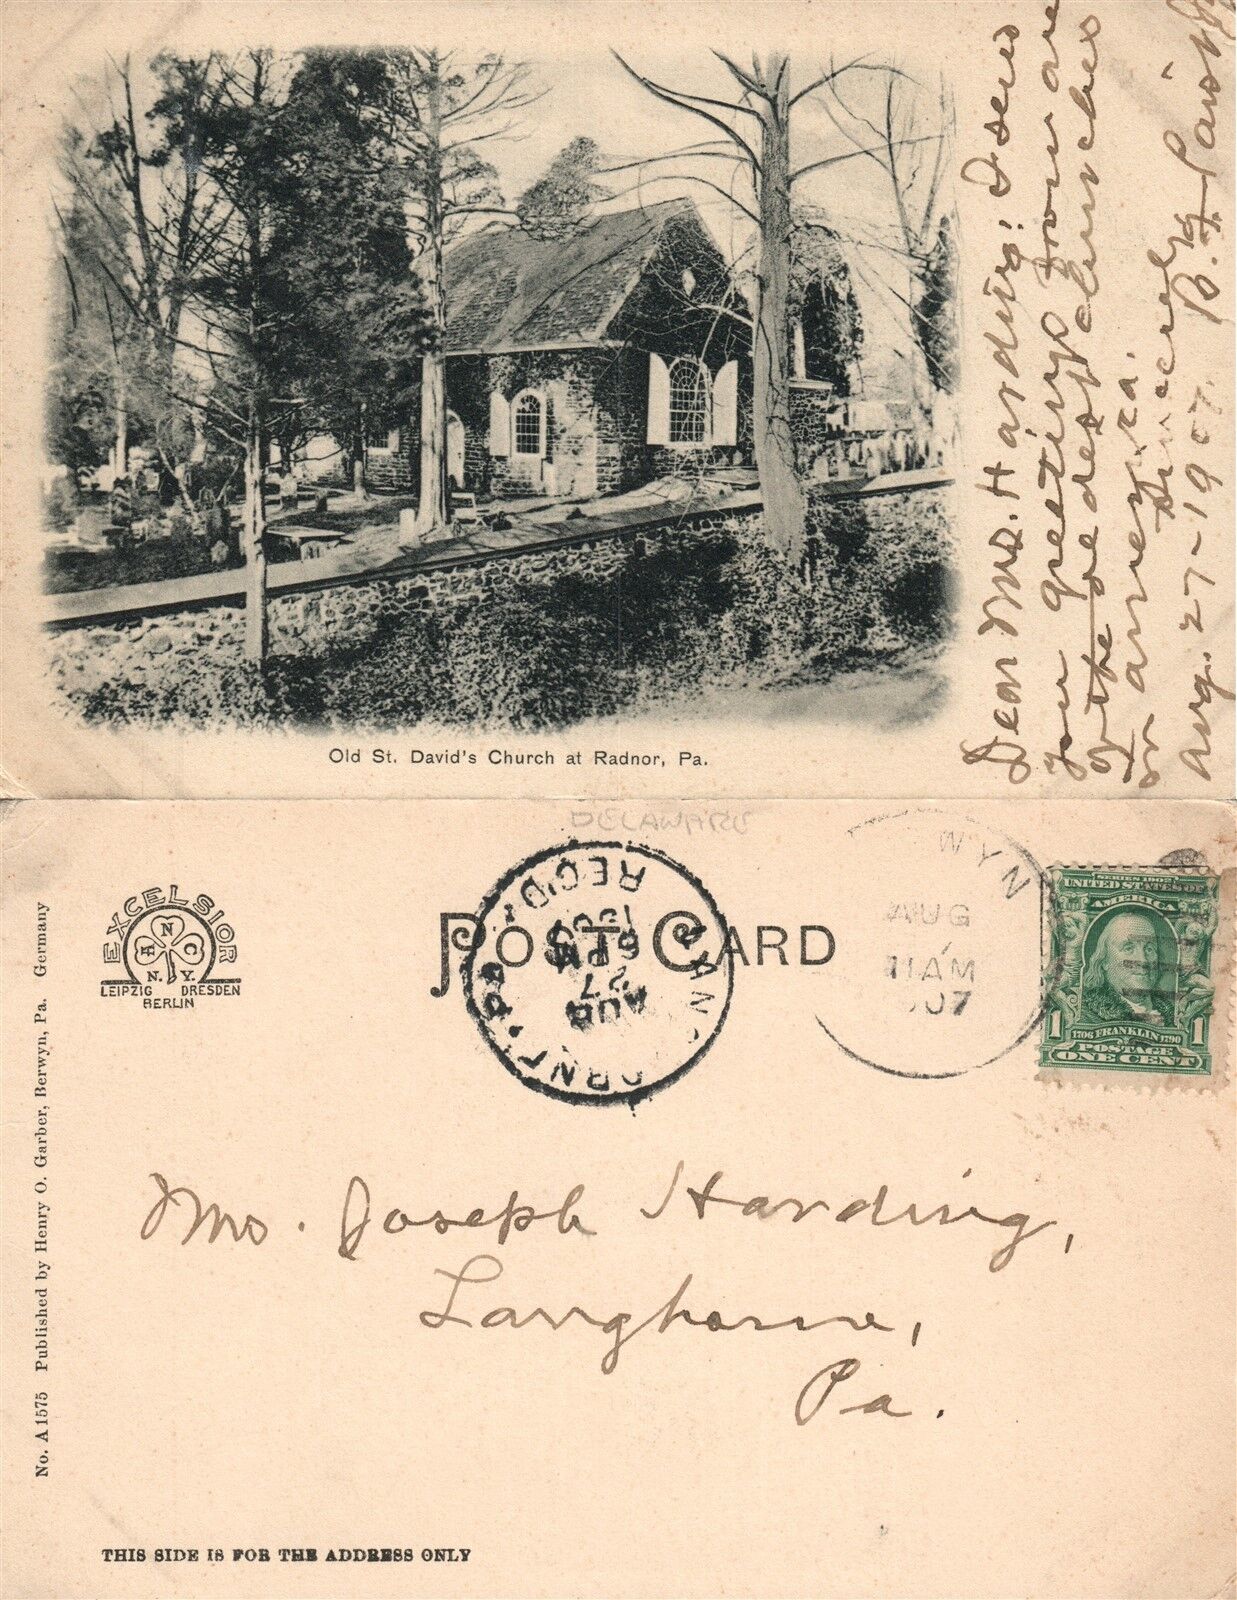 Dear Mrs. Harding: I send
you greetings from one
of the oldest churches
in America.
Sincerely
Aug. 27-1907.
Old St. David's Church at Radnor, Pa.
DELAWARE
EXCELSIOR
N.Y.
LEIPZIG DRESDEN
BERLIN
POST CARD
REC'D.
1907
6 PM
27
AUG
PA.
WYN
AUG
11 AM
07
SERIES 1902
UNITED STATES OF
AMERICA
1 1
1706 FRANKLIN 1790
POSTAGE
ONE CENT
No. A 1575 Published by Henry O. Garber, Berwyn, Pa. Germany
Mrs. Joseph Harding,
Langhorne,
Pa.
THIS SIDE IS FOR THE ADDRESS ONLY